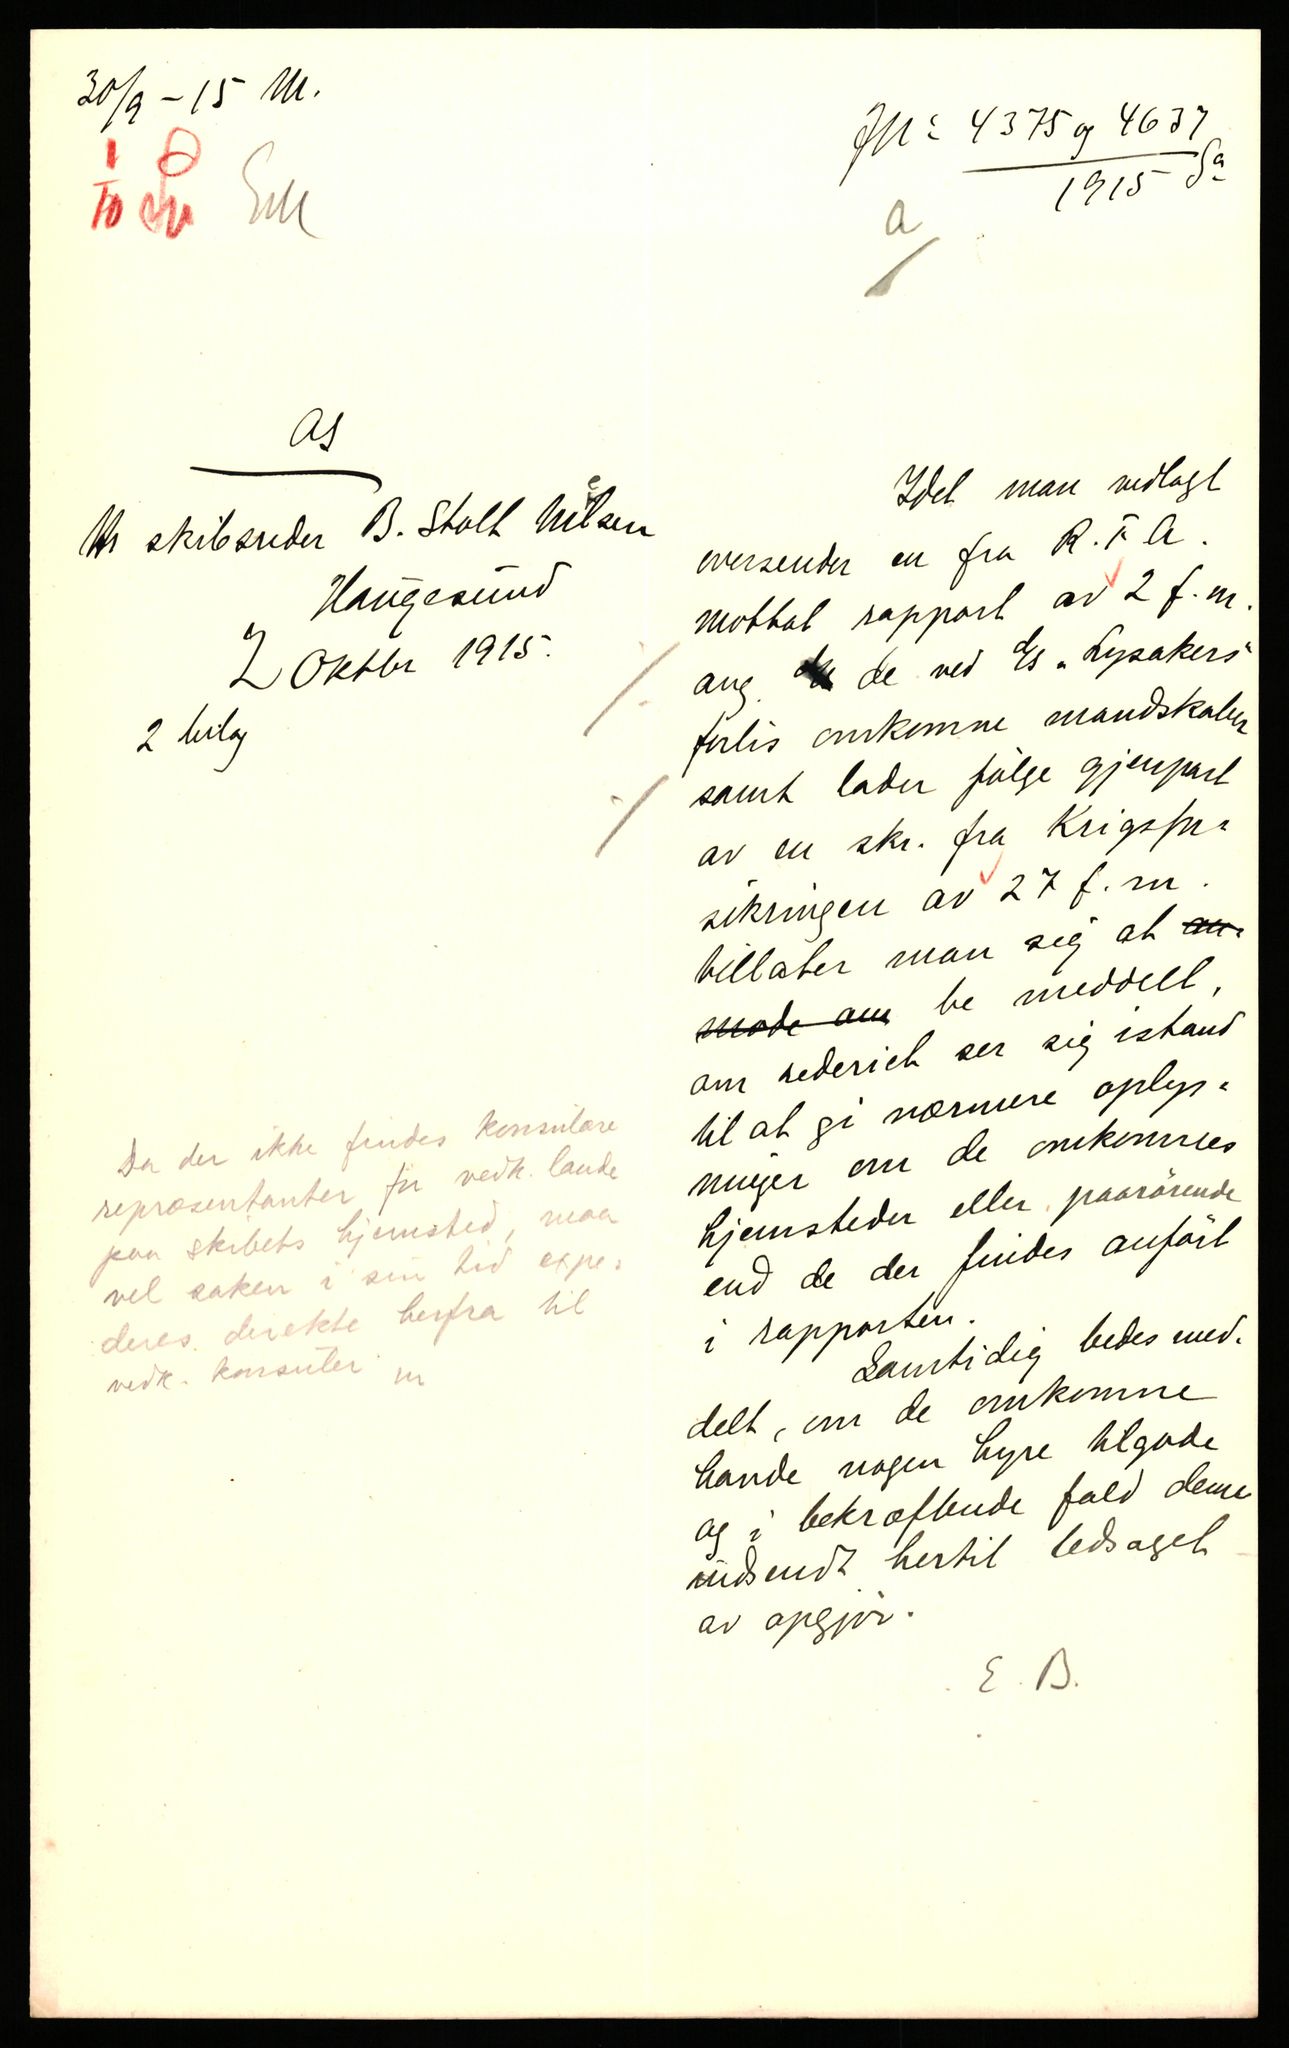 30/9 - 15 M.
1
10
JNr 4375 og 4637
1915 Sa
a
AS
Hr skibsreder B. Stolt Nielsen
Haugesund
2 Oktbr 1915.
2 bilag
Da der ikke findes konsulære
repræsentanter for vedk. lande
paa skibets hjemsted, maa
vel saken i sin tid expe-
deres direkte herfra til
vedk. konsuler m
Idet man vedlagt
oversender en fra R. F. A.
mottat rapport av 2 f. m.
ang. de ved D/S "Lysakers"
forlis omkomne mandskaber
samt lader følge gjenpart
av en skr. fra Krigsfor-
sikringen av 27 f. m.
tillater man sig at an-
mode om be meddelt,
om rederiet ser sig istand
til at gi nærmere oplys-
ninger om de omkomnes
hjemsteder eller paarørende
end de der findes anført
i rapporten.
Samtidig bedes med-
delt, om de omkomne
havde nogen hyre tilgode
og i bekræftende fald denne
indsendt hertil ledsaget
av opgjør.
E. B.